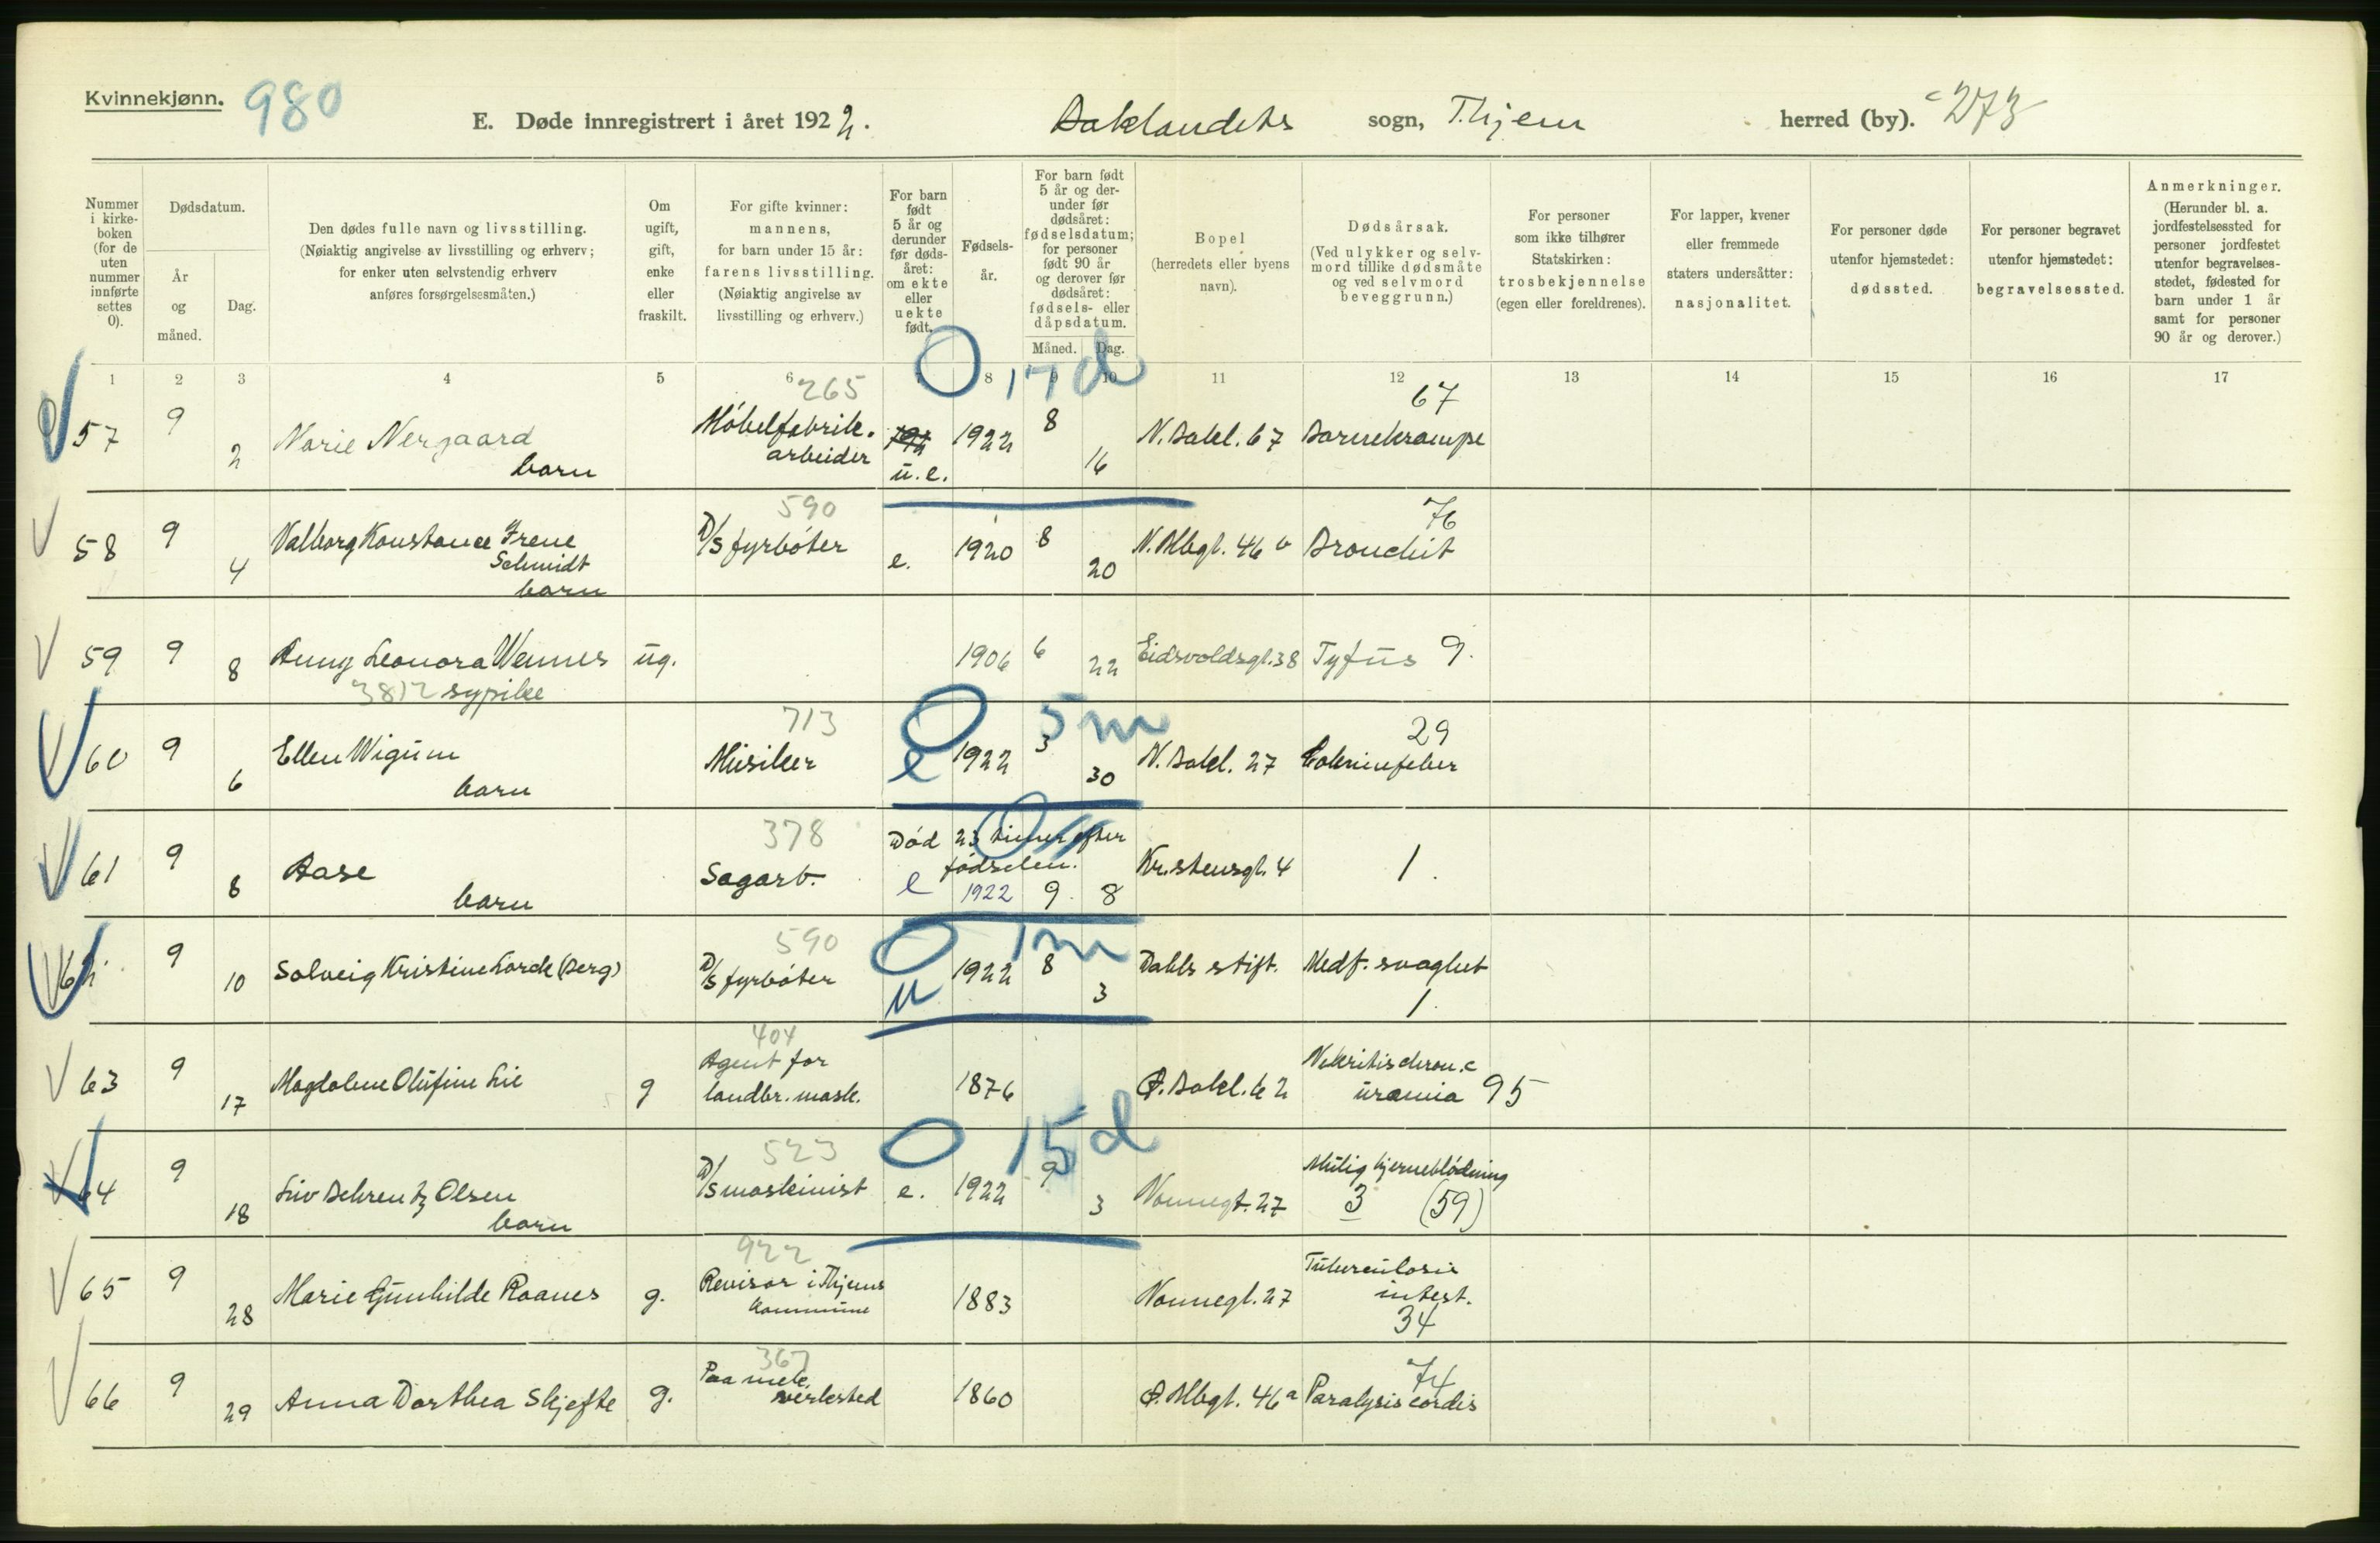 Kvinnekjønn.
980
E. Døde innregistrert i året 1922.
Baklandets sogn, T.hjem herred (by).
273
Nummer i kirkeboken (for de uten nummer innførte settes 0).
Dødsdatum.
År og måned.
Dag.
Den dødes fulle navn og livsstilling.
(Nøiaktig angivelse av livsstilling og erhverv;
for enker uten selvstendig erhverv
anføres forsørgelsesmåten.)
Om ugift, gift, enke eller fraskilt.
For gifte kvinner:
mannens,
for barn under 15 år:
farens livsstilling.
(Nøiaktig angivelse av
livsstilling og erhverv.)
For barn født 5 år og derunder før dødsåret: om ekte eller uekte født.
Fødselsår.
For barn født 5 år og derunder før dødsåret: fødselsdatum; for personer født 90 år og derover før dødsåret: fødsels- eller dåpsdatum.
Måned. Dag.
Bopel
(herredets eller byens
navn).
Dødsårsak.
(Ved ulykker og selvmord tillike dødsmåte og ved selvmord beveggrunn.)
For personer
som ikke tilhører
Statskirken:
trosbekjennelse
(egen eller foreldrenes).
For lapper, kvener
eller fremmede
staters undersåtter:
nasjonalitet.
For personer døde
utenfor hjemstedet:
dødssted.
For personer begravet
utenfor hjemstedet:
begravelsessted.
Anmerkninger.
(Herunder bl. a.
jordfestelsessted for
personer jordfestet
utenfor begravelsesstedet, fødested for
barn under 1 år
samt for personer
90 år og derover.)
1 2 3 4 5 6 7 8 9 10 11 12 13 14 15 16 17
265 0 17 d 67
57 9 2 Marie Nergaard barn Möbelfabrik.arbeider u.e. 1922 8 16 N. Bakl. 67 Barnekrampe
590 76
58 9 4 Valborg Konstance Irene Schmidt barn D/S fyrböter e. 1920 8 20 N. Albgt. 46 b Bronchit
59 9 8 Anny Leonora Wennes ug. 1906 6 22 Eidsvoldsgt. 38 Tyfus 9.
3812 sypike
713 0 5 m 29
60 9 6 Ellen Wigum barn Musiker e 1922 3 30 N. Bakl. 27 Kokrinfeber
378 0
61 9 8 Aase barn Sagarb. Död 23 timer efter födselen. e 1922 9 8 Kr.stensgt. 4 1.
590 0 1 m
62 9 10 Solveig Kristine Lorck (Berg) D/S fyrböter u 1922 8 3 Dahls stift. Medf. svaghet 1
404
63 9 17 Magdalene Olufine Lie g Agent for landbr. mask. 1876 Ø. Bakl. 62 Nefritis chron.c uræmia 95
523 0 15 d
64 9 18 Liv Behrentz Olsen barn D/S maskinist e. 1922 9 3 Nonnegt. 27 Mulig hjerneblödning 3 (59)
922
65 9 28 Marie Gunhilde Raanes g. Revisor i T.hjems kommune 1883 Nonnegt. 27 Tuberculosis intest. 34
367 74
66 9 29 Anna Dorthea Skjefte g. Paa mek. verksted 1860 Ø. Albgt. 46 a Paralysis cordis